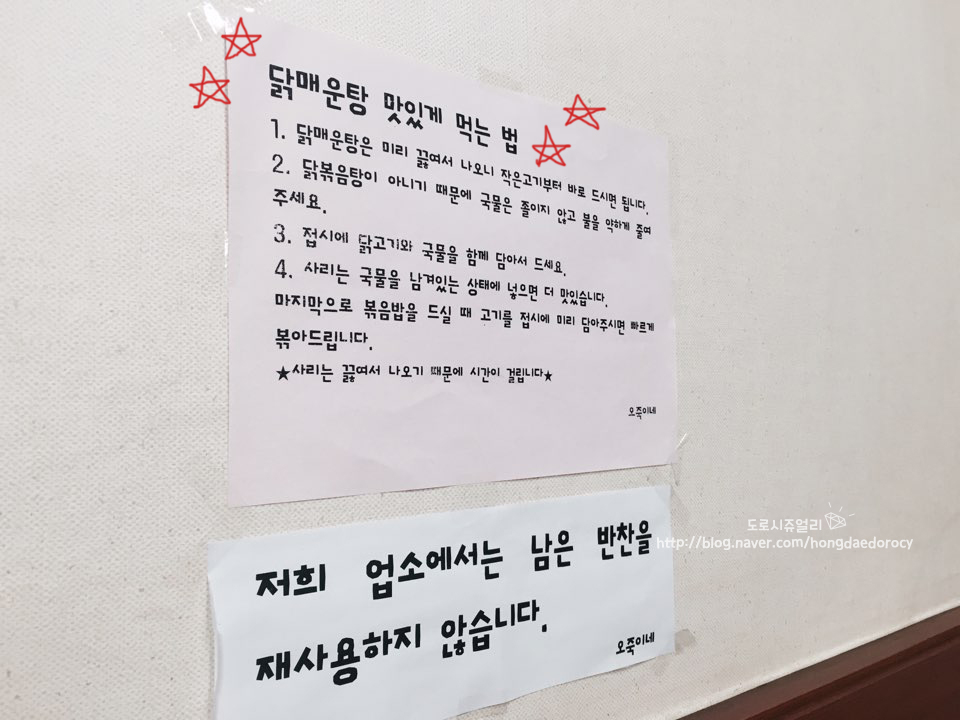 닭매운탕 맛있게 먹는 법
1. 닭매운탕은 미리 끓여서 나오니 작은고기부터 바로 드시면 됩니다.
2. 닭볶음탕이 아니기 때문에 국물은 졸이지 않고 불을 약하게 줄여
주세요.
3. 접시에 닭고기와 국물을 함께 담아서 드세요.
4. 사리는 국물을 남겨있는 상태에 넣으면 더 맛있습니다.
마지막으로 볶음밥을 드실 때 고기를 접시에 미리 담아주시면 빠르게
볶아드립니다.
★사리는 끓여서 나오기 때문에 시간이 걸립니다★
오죽이네
저희 업소에서는 남은 반찬을
재사용하지 않습니다.
오죽이네
도로시쥬얼리
http://blog.naver.com/hongdaedorocy